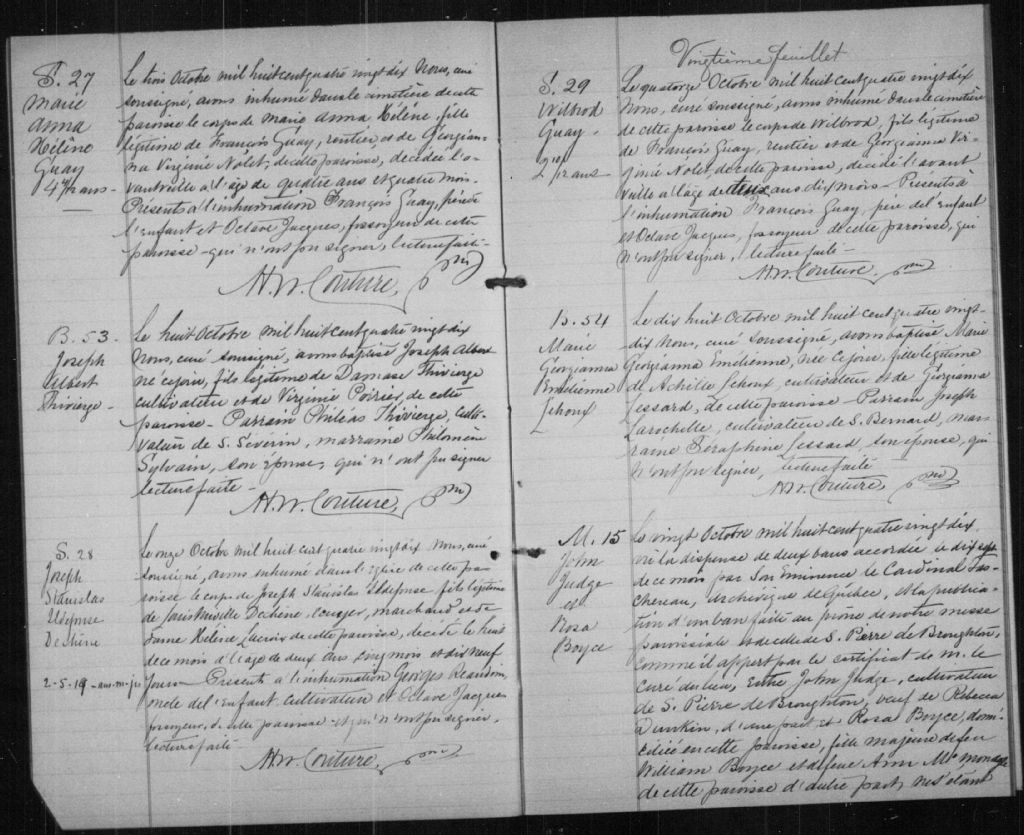 S. 27
Marie
Anna
Hélène
Guay
4 4/12 ans -
Le trois Octobre mil huit cent quatre vingt dix Nous, curé
soussigné, avons inhumé dans le cimetière de cette
paroisse le corps de Marie Anna Hélène, fille
légitime de François Guay, rentier, et de Georgian-
na Virginie Nolet, de cette paroisse, décédée l'a-
vant veille a l'age de quatre ans et quatre mois.
Présents a l'inhumation François Guay, père de
l'enfant et Octave Jacques, fossoyeur de cette
paroisse - qui n'ont pu signer, lecture faite -
H. W. Couture, ptre
B. 53 -
Joseph
Albert
Thivierge -
Le huit Octobre mil huit cent quatre vingt dix
Nous, curé soussigné, avons baptisé Joseph Albert
né ce jour, fils légitime de Damase Thivierge
cultivateur et de Virginie Poirier, de cette
paroisse - Parrain Philéas Thivierge, culti-
vateur de S. Séverin, marraine Philomène
Sylvain, son épouse, qui n'ont pu signer
lecture faite -
H. W. Couture, ptre
S. 28
Joseph
Stanislas
Ildefonse
Dechène
2-5-19 - ans-m-jrs
Le onze Octobre mil huit cent quatre vingt dix Nous, curé
soussigné, avons inhumé dans l'église de cette pa-
roisse le corps de Joseph Stanislas Ildefonse fils légitime
de Louis Miville Dechène, écuyer, marchand et de
dame Hélène Lacroix de cette paroisse, décédé le huit
de ce mois a l'age de deux ans cinq mois et dix neuf
jours - Présents a l'inhumation Georges
oncle de l'enfant cultivateur et Octave Jacques
fossoyeur, de cette paroisse - et qui n'ont pu signer,
lecture faite -
H. W. Couture, ptre
Vingtième feuillet
S. 29
Wilbrod
Guay -
2 10/12 ans
Le quatorze Octobre mil huit cent quatre vingt dix
Nous, curé soussigné, avons inhumé dans le cimetière
de cette paroisse le corps de Wilbrod, fils légitime
de François Guay, rentier et de Georgianna Vir-
ginie Nolet, de cette paroisse, décédé l'avant
veille a l'age de deux ans dix mois - Présents à
l'inhumation François Guay, père de l'enfant
et Octave Jacques, fossoyeur de cette paroisse, qui
n'ont pu signer, lecture faite -
H. W. Couture, ptre
B. 54
Marie
Georgianna
Emélienne
Lehoux
Le dix huit Octobre mil huit cent quatre vingt-
dix Nous, curé soussigné, avons baptisé Marie
Georgianna Emélienne, née ce jour, fille légitime
de Achille Lehoux, cultivateur et de Georgianna
Lessard, de cette paroisse - Parrain Joseph
Larochelle, cultivateur de S. Bernard, mar-
raine Séraphine Lessard son épouse, qui
n'ont pu signer, lecture faite
H. W. Couture, ptre
M. 15
John
Judge
et
Rosa
Boyce
Le vingt Octobre mil huit cent quatre vingt dix,
vu la dispense de deux bans accordée le dix sept
de ce mois par Son Eminence le Cardinal Tas-
chereau, Archevêque de Québec, et la publica-
tion d'un ban faite au prône de notre messe
paroissiale et de celle de S. Pierre de Broughton,
comme il appert par le certificat de M. le
curé du lieu, Entre John Judge, cultivateur
de S. Pierre de Broughton, veuf de Rebecca
Dunkin, d'une part, et Rosa Boyce, domi-
ciliée en cette paroisse, fille majeure de feu
William Boyce et de feue Ann
de cette paroisse d'autre part, ne s'étant